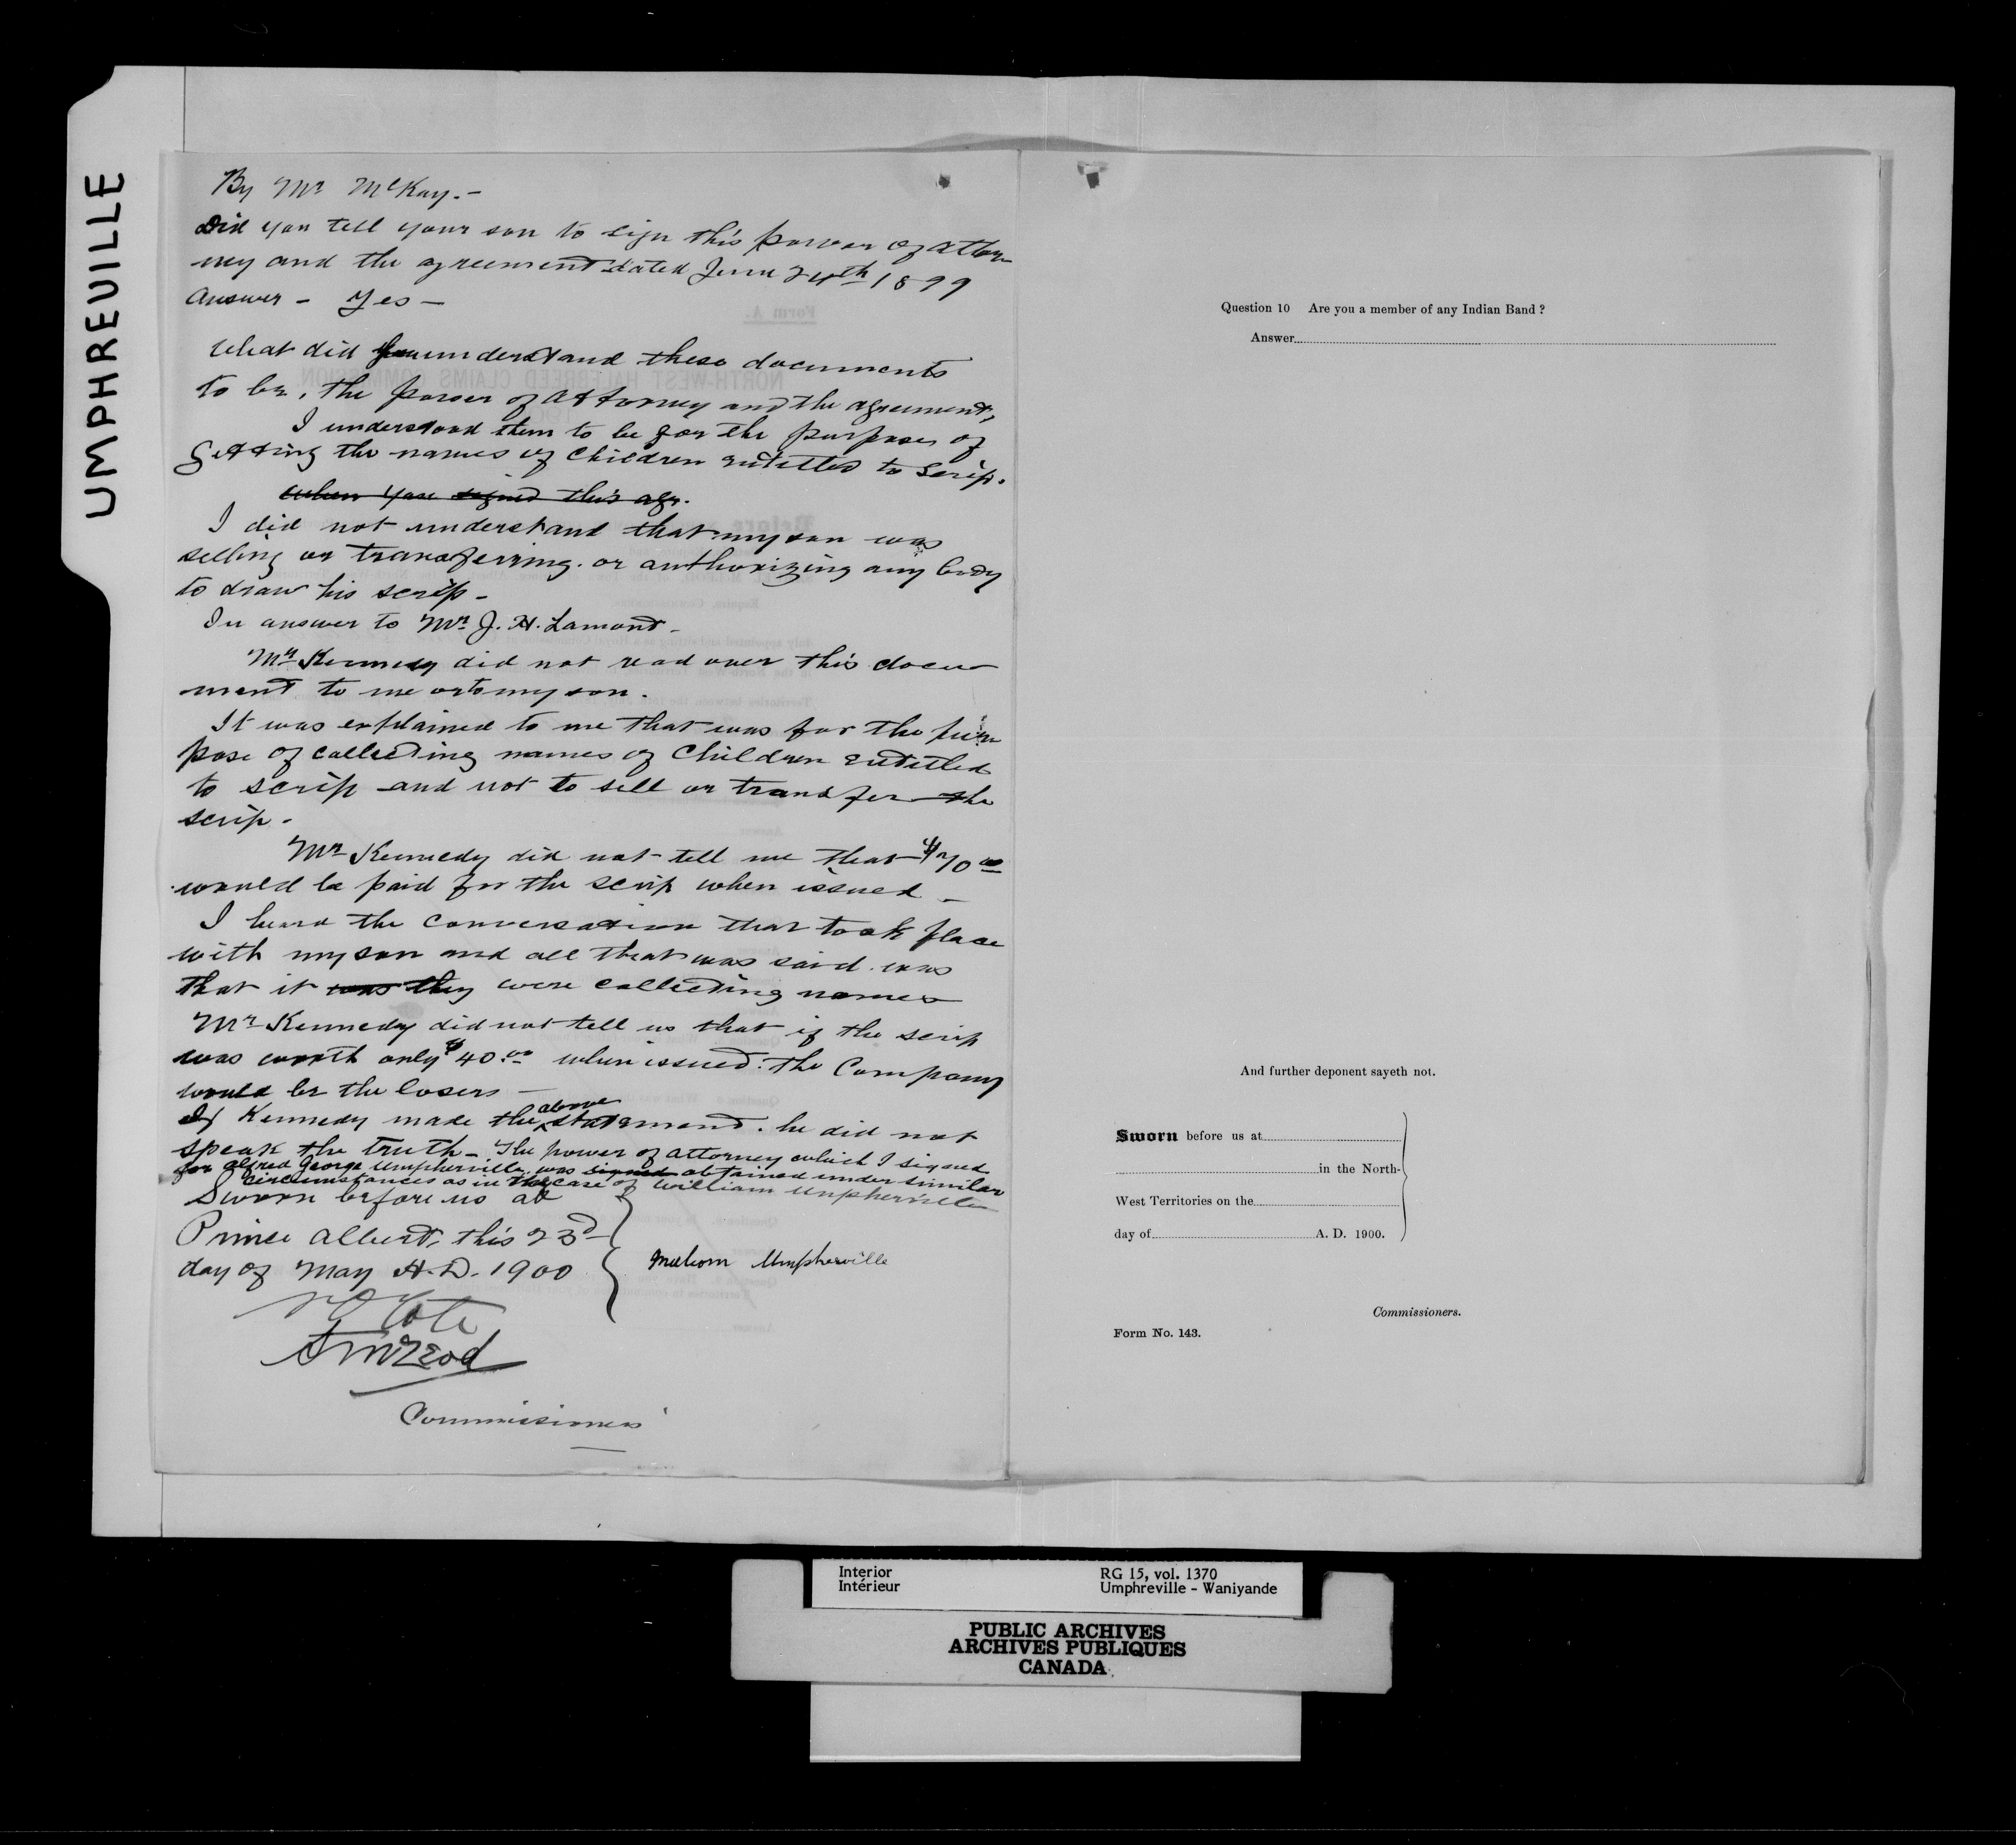 UMPHREVILLE
By Mr McKay. -
Did you tell your son to sign this power of attor
ney and the agreement dated June 24th 1899
Answer - Yes -
What did you understand these documents
to be, the power of attorney and the agreement,
I understood them to be for the purpose of
getting the names of children entitled to scrip.
when you signed this agr.
I did not understand that my son was
selling or transferring. or authorizing any body
to draw his scrip -
In answer to Mr. J. H. Lamont -
Mr Kennedy did not read over this docu
ment to me or to my son.
It was explained to me that was for the pur
pose of collecting names of Children entitled
to scrip and not to sell or transfer the
scrip -
Mr Kennedy did not tell me that $70.00
would be paid for the scrip when issued -
I heard the conversation that took place
with my son and all that was said was
that it was they were collecting names
Mr Kennedy did not tell us that if the scrip
was worth only $40.00 when issued. the Company
would be the losers -
If Kennedy made the above statement. he did not
speak the truth - The power of attorney which I signed
for Alfred George Umpherville was signed obtained under similar
circumstances as in the case of William Umpherville
Sworn before us at
Prince Albert, this 23d
day of May A.D. 1900
Malcom Umpherville
Cote
McLeod
Commissioners
Form A.
NORTH-WEST HALFBREED CLAIMS COMMISSION
Before
Question 10 Are you a member of any Indian Band ?
Answer
And further deponent sayeth not.
Sworn before us at
in the North-
West Territories on the
day of A. D. 1900.
Commissioners.
Form No. 143.
Interior
Intérieur
RG 15, vol. 1370
Umphreville - Waniyande
PUBLIC ARCHIVES
ARCHIVES PUBLIQUES
CANADA